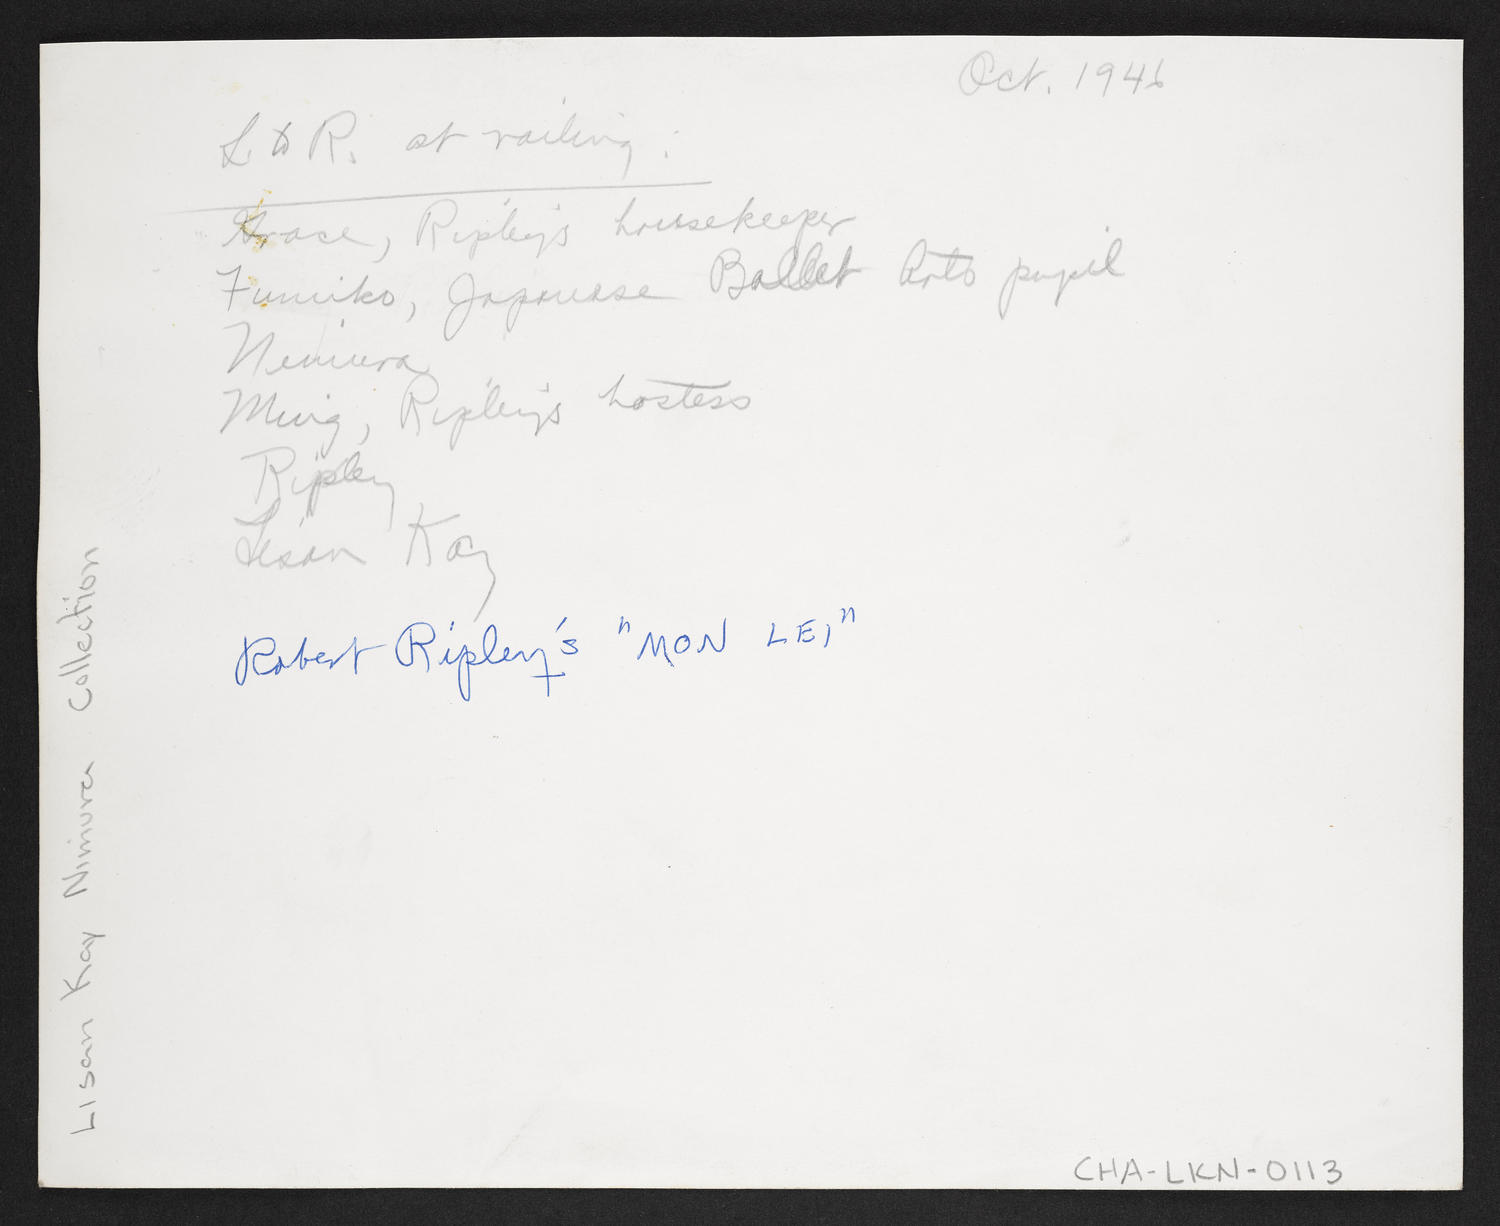 Oct. 1946
L to R. at railing:
Grace, Ripley's housekeeper
Fumiko, Japanese Ballet Arts pupil
Nimura
Ming, Ripley's hostess
Ripley
Lisan Kay
Robert Ripley's "MON LEI"
Lisan Kay Nimura Collection
CHA-LKN-0113